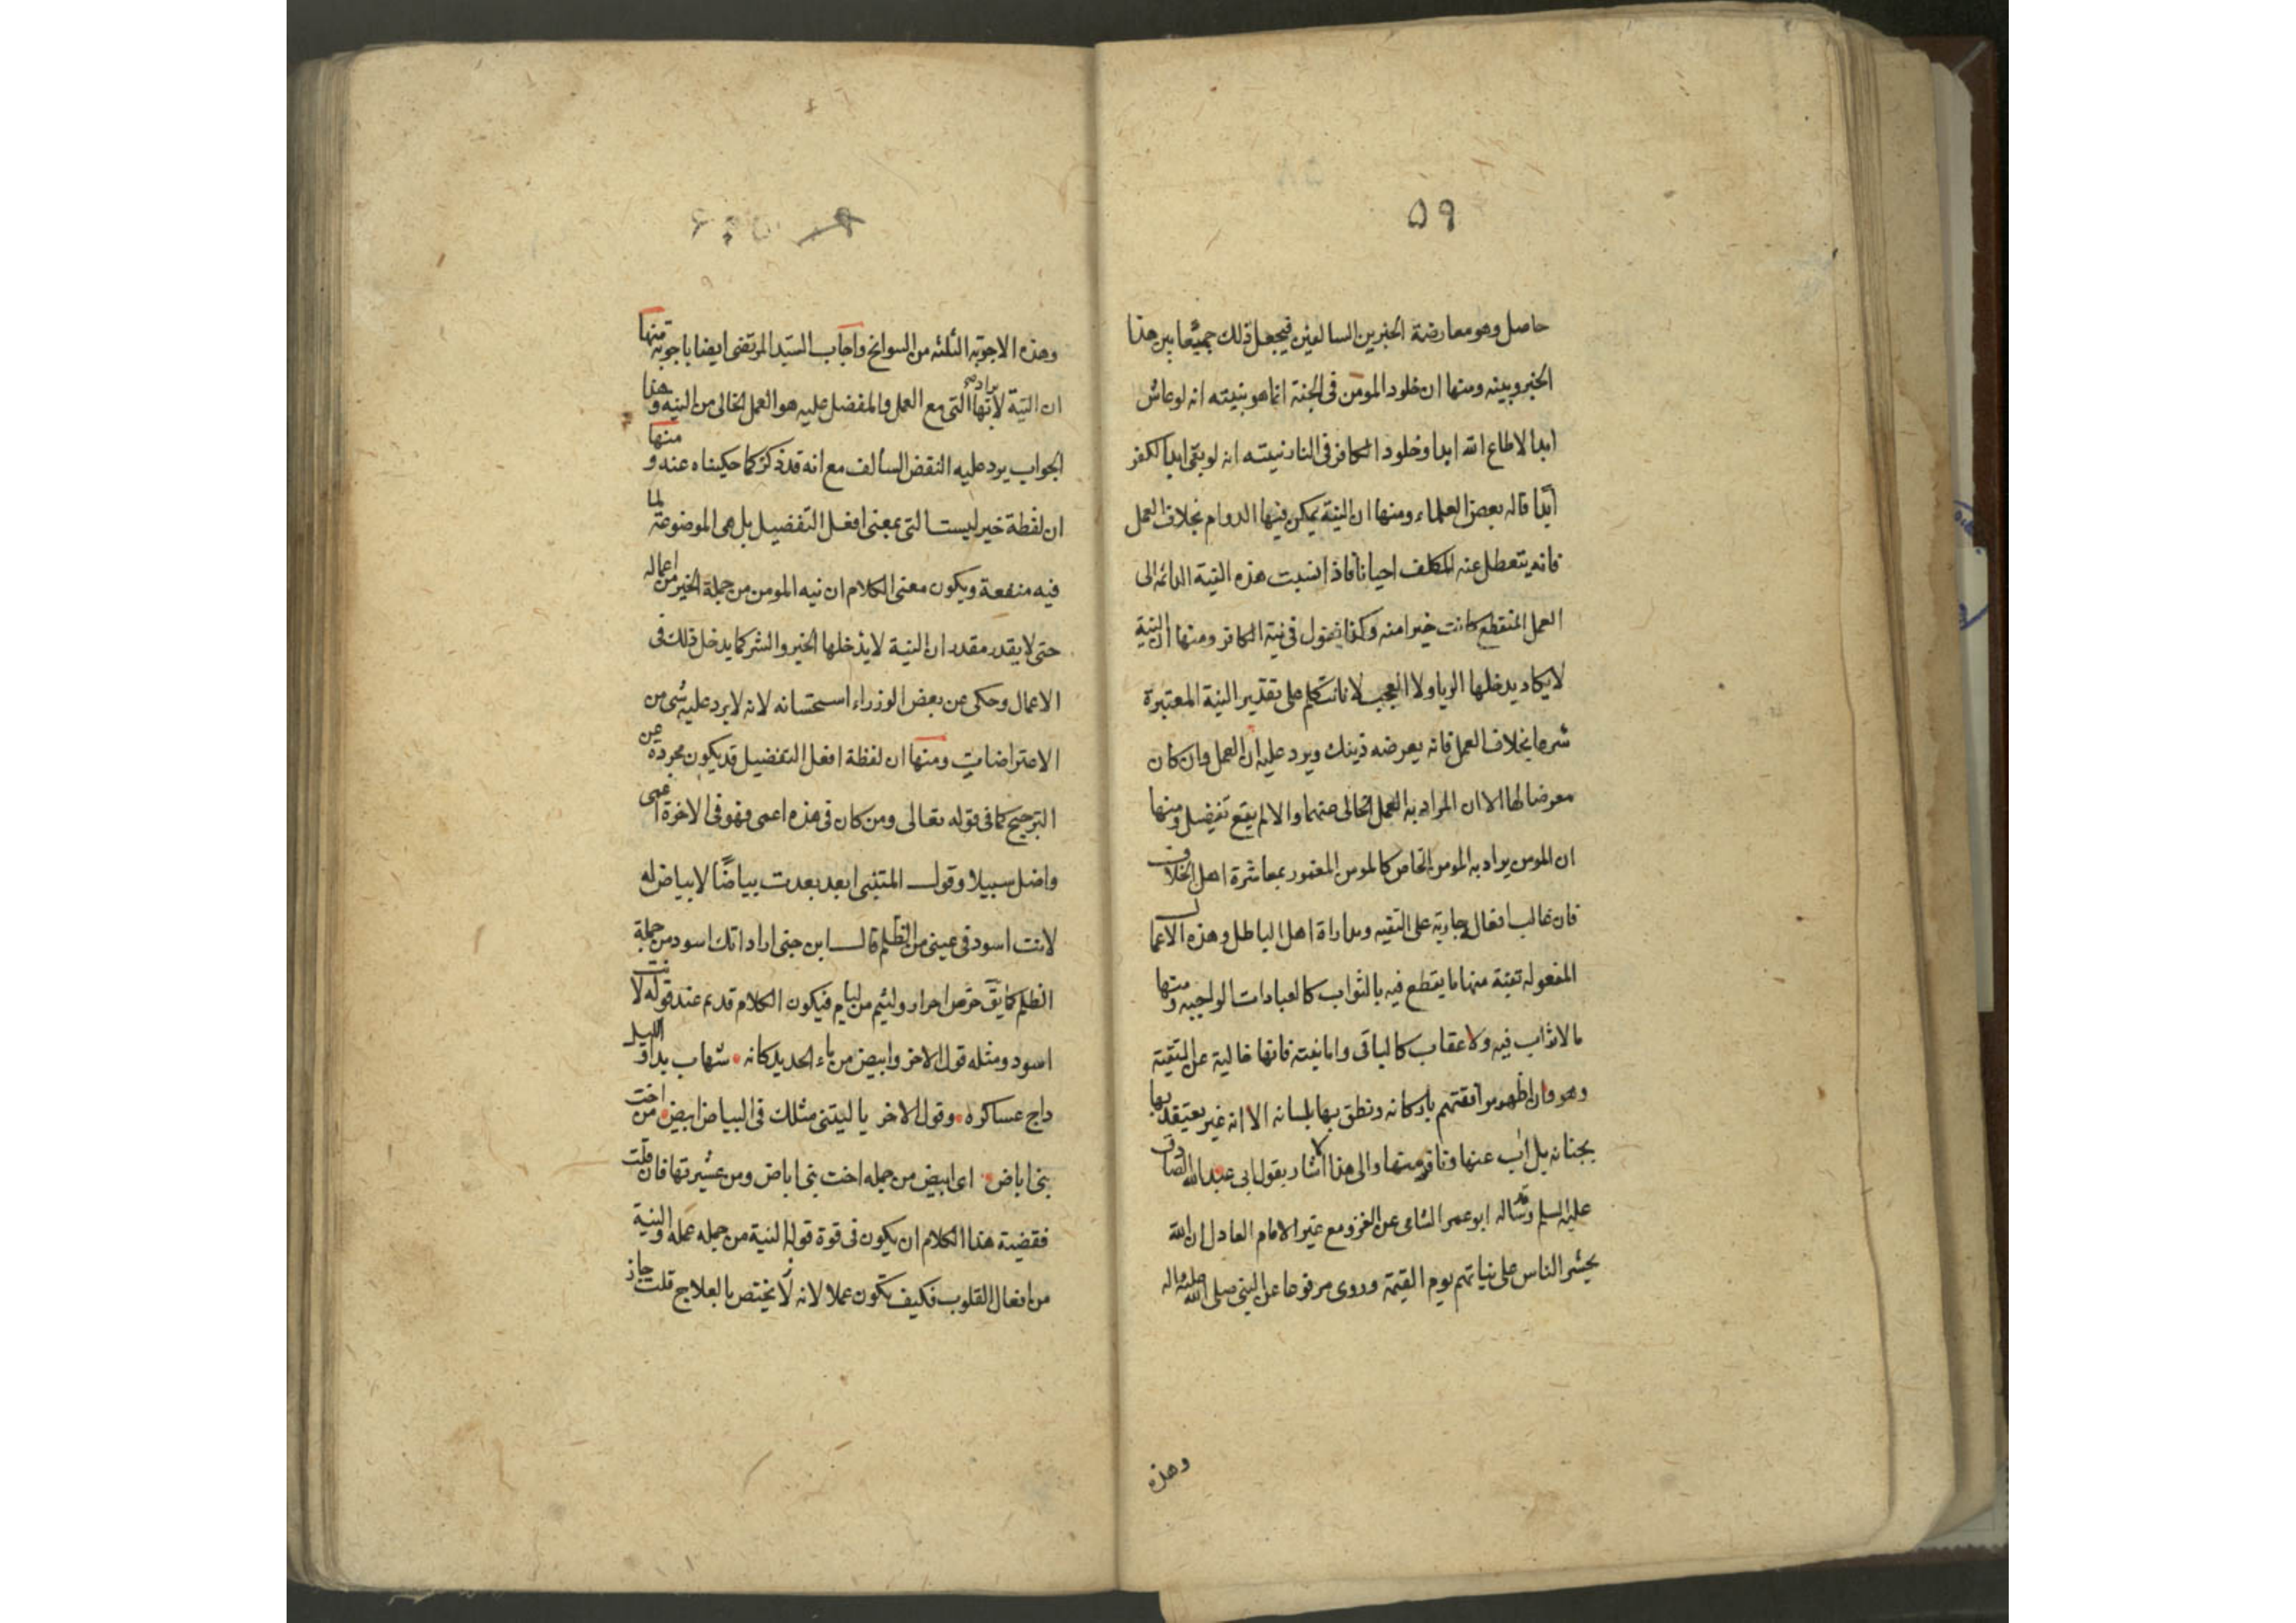 ٥٩
حاصل وهو معارضة الخبرين السالفين فيجعل ذلك جميعا بين هذا
الخبر وبينه ومنها ان خلود المومن فى الجنة انما هو بنيته انه لو عاش
ابدا لاطاع الله ابدا وخلود الكافر فى النار نيته انه لو بقى ابدا لكفر
ابدا قاله بعض العلماء ومنها ان النية يمكن فيها الدوام بخلاف العمل
فانه يتعطل عنه المكلف احيانا فاذا نسبت هذه النية الدائمة الى
العمل المنقطع كانت خيرا منه وكذا نقول فى نية الكافر ومنها ان النية
لا يكاد يدخلها الريا ولا العجب لانا نتكلم على تقدير النية المعتبرة
شرعا بخلاف العمل فانه يعرضه ذينك ويرد عليه ان العمل وان كان
معرضا لها الا ان المراد به العمل الخالى عنهما والا لم يقع تفضيل ومنها
ان المومن يراد به المومن الخاص كالمومن المغمور بمعاشرة اهل الخلاف
فان غالب افعال جارية على التقيه ومداراة اهل الباطل وهذه الاعمال
المفعولة تقية منها ما يقطع فيه بالثواب كالعبادات الواجبه ومنها
ما لا ثواب فيه ولا عقاب كالباقى واما نيته فانها خالية عن التقية
وهو وان اظهر موافقتهم باركانه ونطق بها بلسانه الا انه غير معتقد بها
بجنانه بل اب عنها ونافر منها والى هذا اشار بقول ابى عبد الله الصادق
عليه السلم وقد ساله ابو عمر الشامى عن الغزو مع غير الامام العادل ان الله
يحشر الناس على نياتهم يوم القيمة وروى مرفوعا عن النبى صلى الله عليه واله
وهذه
وهذه الاجوبة الثلثه من السوانح واجاب السيد المرتضى ايضا باجوبة منها
ان النية لا يراد بها التى مع العمل والمفضل عليه هو العمل الخالى من النيه وهذا
الجواب يرد عليه النقض السالف مع انه قد ذكر كما حكيناه عنه ومنها
ان لفظة خير ليست التى بمعنى افعل التفضيل بل هى الموضوعة لما
فيه منفعة ويكون معنى الكلام ان نيه المومن من جملة الخير من اعماله
حتى لا يقدر مقدر ان النية لا يدخلها الخير والشر كما يدخل ذلك فى
الاعمال وحكى عن بعض الوزراء استحسانه لانه لا يرد عليه شى من
الاعتراضات ومنها ان لفظة افعل التفضيل قد يكون مجردة عن
الترجيح كما فى قوله تعالى ومن كان فى هذه اعمى فهو فى الاخرة اعمى
واضل سبيلا وقول المتنبى ابعد بعدت بياضا لا بياض له
لانت اسود فى عينى من الظلم قال ابن جنى اراد انك اسود من جملة
الظلم كما يق حر من احرار ولئيم من ليام فيكون الكلام قد تم عند قوله لانت
اسود ومثله قول الاخر وابيض من ماء الحديد كانه • شهاب بدا والليل
داج عساكره • وقول الاخر يا ليتنى مثلك فى البياض ابيض • من اخت
بنى اباض • اى ابيض من جمله اخت بنى اباض ومن عشيرتها فان قلت
فقضية هذا الكلام ان يكون فى قوة قوله النية من جمله عمله والنية
من افعال القلوب فكيف تكون عملا لانه لا يختص بالعلاج قلت جاز